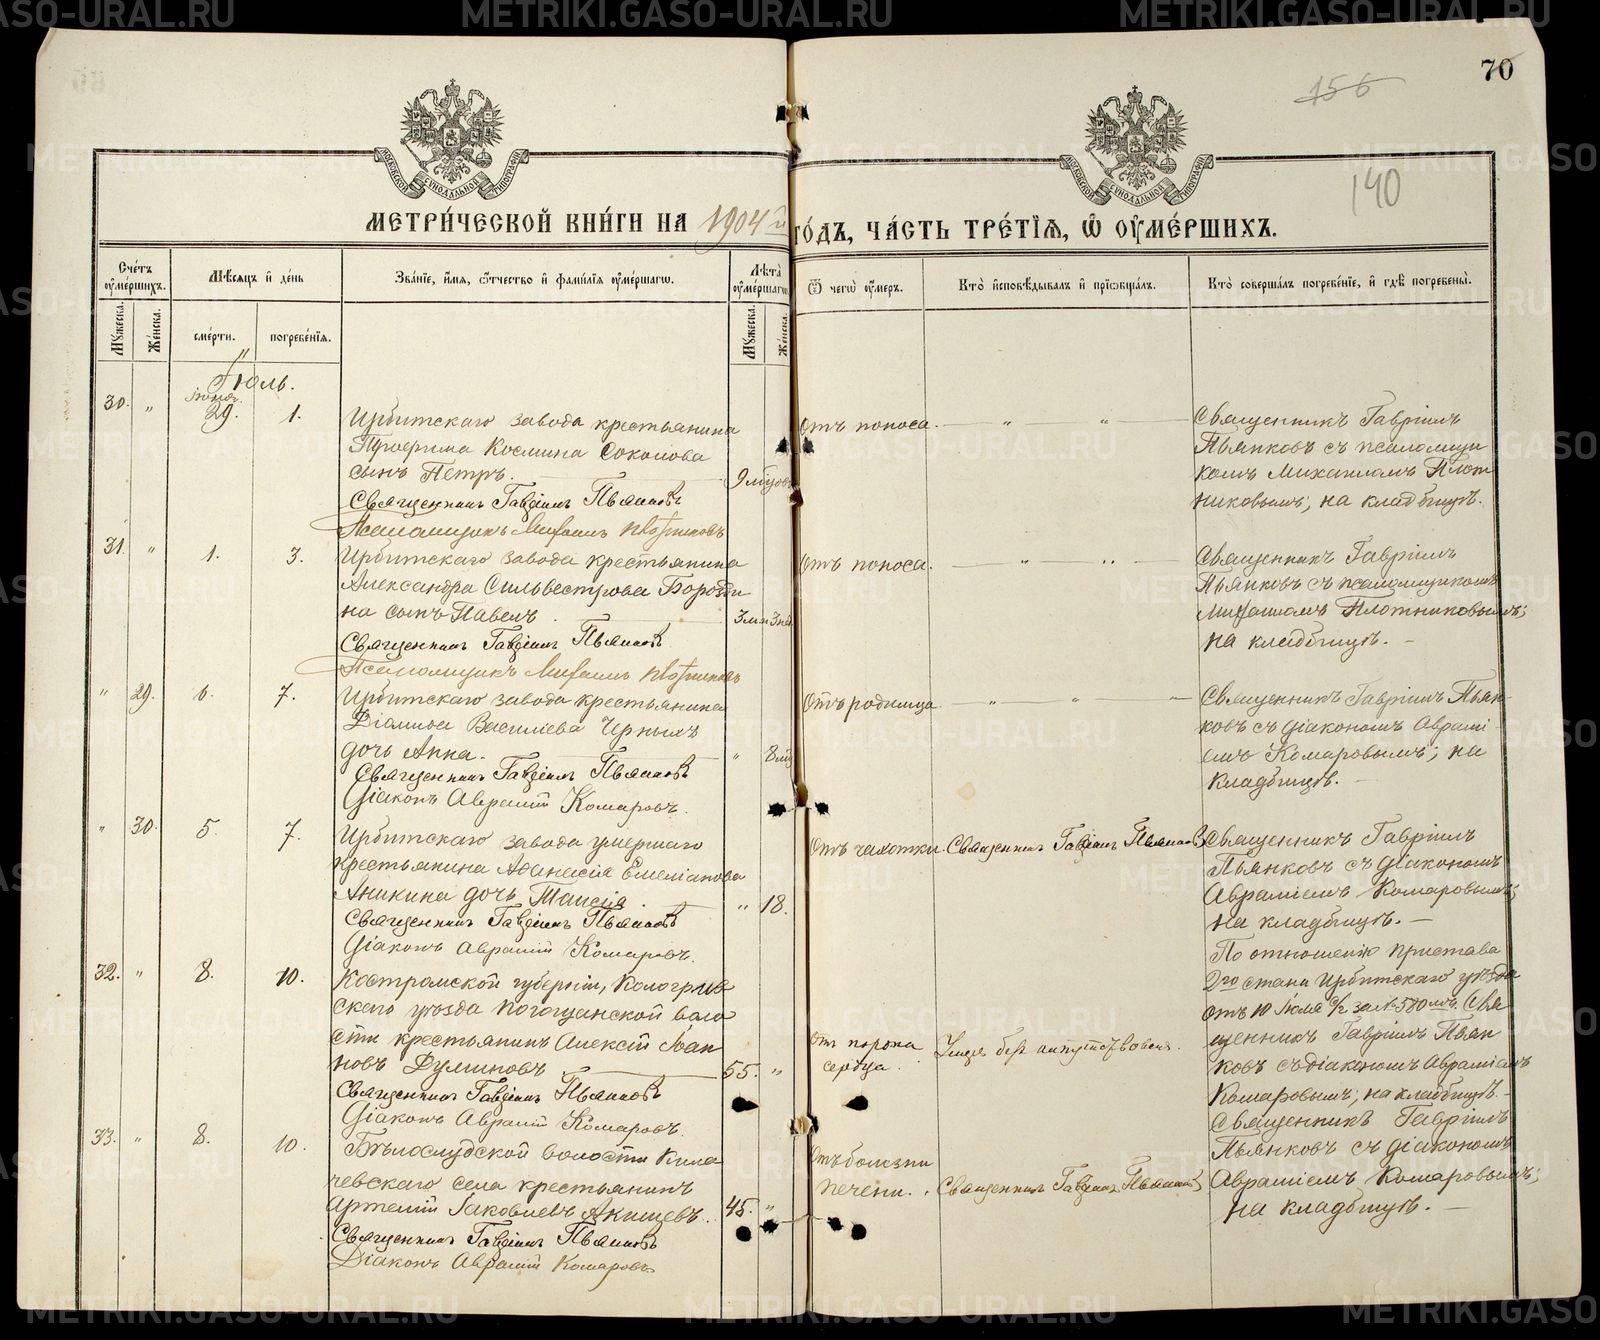 70
156
140
МОСКОВСКОЙ СѴНОДАЛЬНОЙ ТИПОГРАФІИ
МОСКОВСКОЙ СѴНОДАЛЬНОЙ ТИПОГРАФІИ
МЕТРИ́ЧЕСКОЙ КНИ́ГИ НА 1904 й го́дъ, ча́сть тре́тїѧ, ѽ ᲂу҆ме́ршихъ.
Сче́тъ ᲂу҆ме́ршихъ.
Мѣ́сѧцъ и҆ де́нь
Зва́нїе, и҆́мѧ, ѻ҆́тчество и҆ фами́лїѧ ᲂу҆ме́ршагѡ.
Лѣ́та ᲂу҆ме́ршагѡ
Ѿ чегѡ̀ ᲂу҆́меръ.
Кто̀ и҆сповѣ́дывалъ и҆ прїѡбща́лъ.
Кто̀ соверша́лъ погребе́нїе, и҆ гдѣ̀ погребены̀.
Мꙋ́жеска.
Же́нска.
сме́рти.
погребе́нїѧ.
Мꙋ́жеска.
Же́нска.
Іюль.
30. " Іюня 29. 1.
Ирбитскаго завода крестьянина
Косьмина Соколова
сынъ Петръ.
9 мѣцов
Священникъ Гавріилъ Пьянковъ
Псаломщикъ Михаилъ Плотниковъ
Отъ поноса. " "
Священникъ Гавріилъ
Пьянковъ съ псаломщи
комъ Михаиломъ Плот
никовымъ; на кладбищѣ.
31. " 1. 3.
Ирбитскаго завода крестьянина
Александра Сильвестрова Бороди
на сынъ Павелъ.
Священникъ Гавріилъ Пьянковъ
Псаломщикъ Михаилъ Плотниковъ
Отъ поноса. " "
Священникъ Гавріилъ
Пьянковъ съ псаломщикомъ
Михаиломъ Плотниковымъ;
на кладбищѣ.
" 29. 6. 7.
Ирбитскаго завода крестьянина
Василіева Черныхъ
дочь Анна.
" 8
Священникъ Гавріилъ Пьянковъ
Діаконъ Аврамій Комаровъ.
Отъ родимца " "
Священникъ Гавріилъ Пьян
ковъ съ діакономъ Аврамі
емъ Комаровымъ; на
кладбищѣ.
" 30. 5. 7.
Ирбитскаго завода умершаго
крестьянина Аѳанасія Емеліанова
Аникина дочь Таисія.
" 18.
Священникъ Гавріилъ Пьянковъ
Діаконъ Аврамій Комаровъ.
Отъ чахотки. Священникъ Гавріилъ Пьянковъ
Священникъ Гавріилъ
Пьянковъ съ діакономъ
Авраміемъ Комаровымъ;
на кладбищѣ.
32. " 8. 10.
Костромской губерніи, Кологрив
скаго уѣзда воло
сти крестьянинъ Алексій Іоан
новъ
55. "
Священникъ Гавріилъ Пьянковъ
Діаконъ Аврамій Комаровъ.
Отъ порока
сердца.
Умеръ безъ напутствованія.
По отношенію пристава
2го стана Ирбитскаго уѣзда
отъ 10 Іюля с/г за № 580 мъ Свя
щенникъ Гавріилъ Пьян
ковъ съ діакономъ Авраміемъ
Комаровымъ; на кладбищѣ.
33. " 8. 10.
Бѣлослудской волости Кила
чевскаго села крестьянинъ
Артемій Іаковлевъ Акишевъ.
45. "
Священникъ Гавріилъ Пьянковъ
Діаконъ Аврамій Комаровъ
Отъ болезни
печени.
Священникъ Гавріилъ Пьянковъ
Священникъ Гавріилъ
Пьянковъ съ діакономъ
Авраміемъ Комаровымъ;
на кладбищѣ.
METRIKI.GASO-URAL.RU